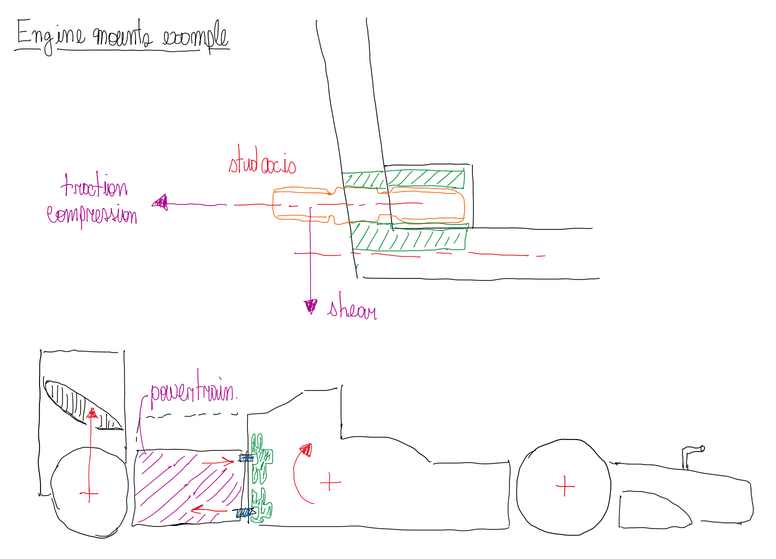 Engine mounts example
stud axis
traction
compression
shear
powertrain.